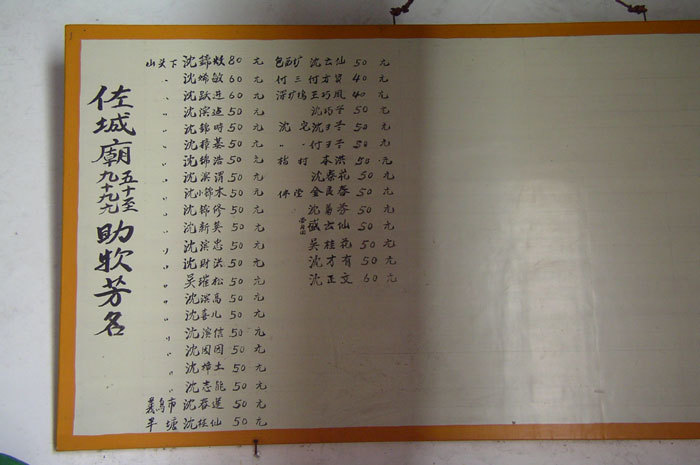 佐城廟五十至九十九元助欤芳名
山头下 沈錦妹 80 元
〃 沈烯敏 60 元
〃 沈跃进 60 元
〃 沈滨达 50 元
〃 沈錦時 50 元
〃 沈樟基 50 元
〃 沈锦浩 50 元
〃 沈滨渭 50 元
〃 沈小錦木 50 元
〃 沈錦修 50 元
〃 沈新英 50 元
〃 沈滨忠 50 元
〃 沈財洪 50 元
〃 吴璀松 50 元
〃 沈滨高 50 元
〃 沈喜儿 50 元
〃 沈滨信 50 元
〃 沈园园 50 元
〃 沈埠土 50 元
〃 沈志能 50 元
義烏市 沈春莲 50 元
羊塘 沈桂仙 50 元
沈云仙 50 元
何三 何方贤 40 元
深圹塢 王巧凤 40 元
沈巧芐 50 元
沈宅 沈月芐 50 元
〃 〃 何月芐 50 元
楮村 本洪 50 元
沈春花 50 元
休塘 金良春 50 元
〃 沈弟芬 50 元
盛云仙 50 元
吴桂花 50 元
沈才有 50 元
沈正文 60 元